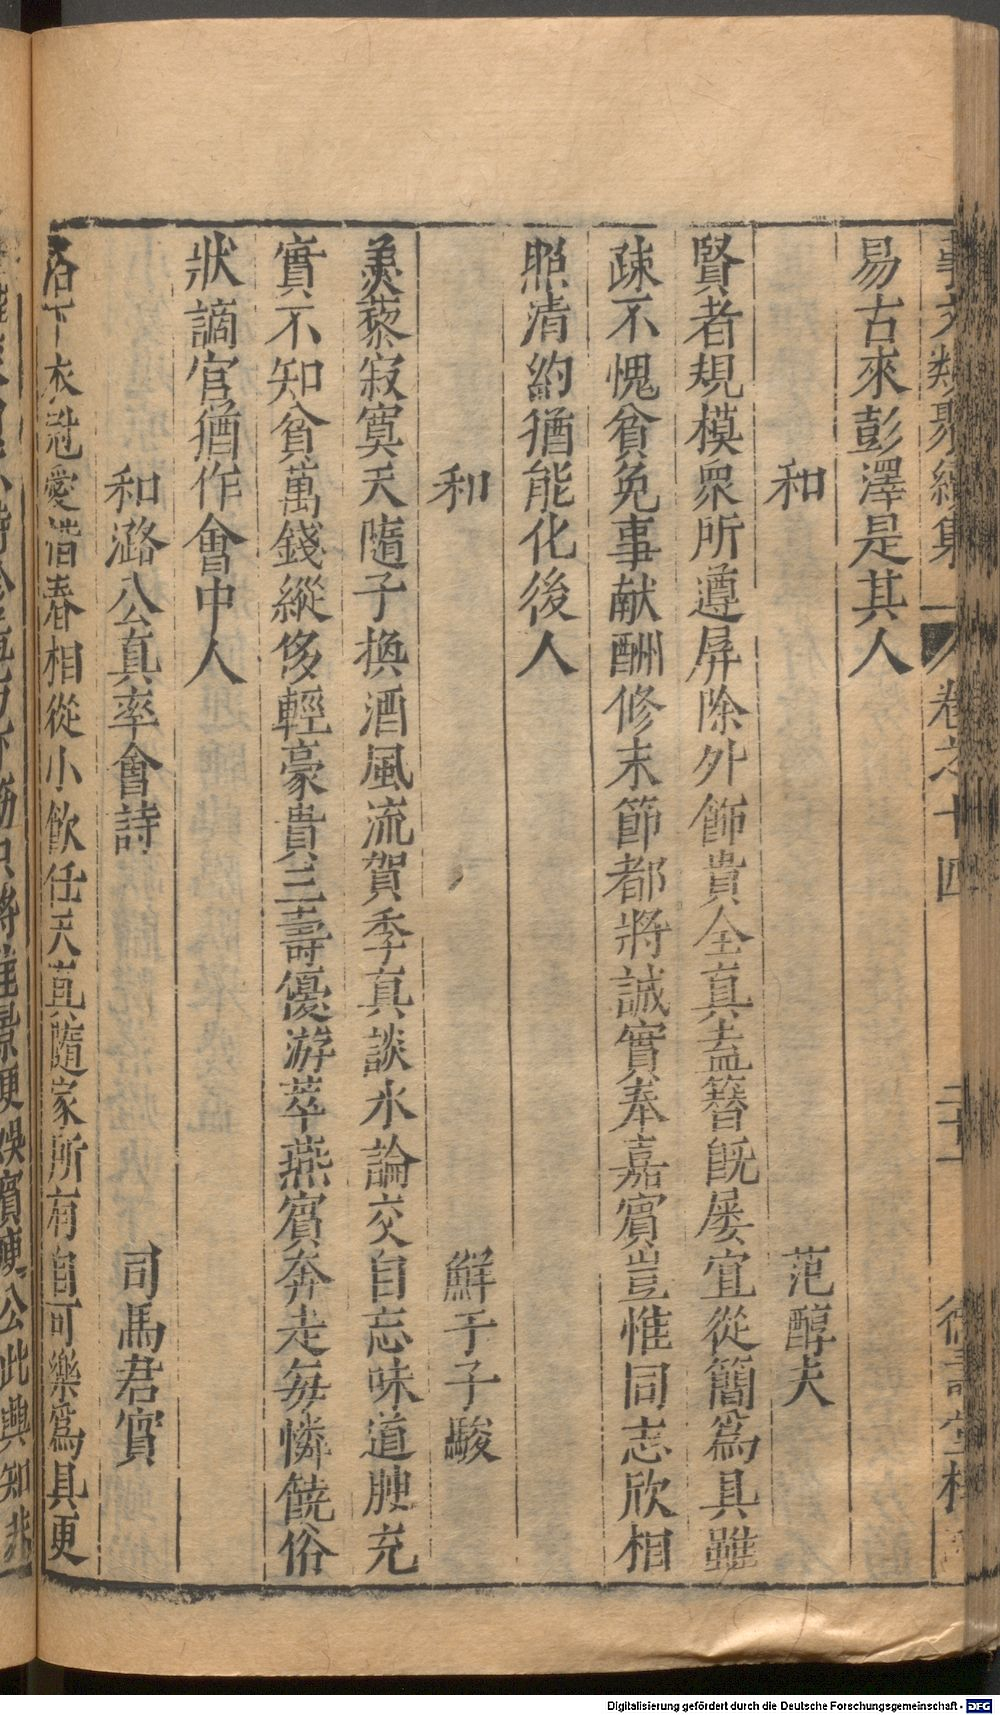 易古來彭澤是其人
和 范醇夫
賢者規模衆所遵屏除外飾貴全真盍簮旣屡宜從簡為具雖
疎不愧貧免事献酬修末節都將誠實奉嘉賓豈惟同志欣相
照清約猶能化後人
和 鮮于子駿
羮藜寂寞天隨子換酒風流賀季真談氷論交自忘味道腴充
實不知貧萬錢縱侈輕豪貴三壽優游萃燕賓奔走每憐饒俗
狀謫官猶作會中人
和潞公真率會詩 司馬君實
洛下衣冠愛惜春相從小飲任天真隨家所有自可樂為具更
Digitalisierung gefördert durch die Deutsche Forschungsgemeinschaft - DFG